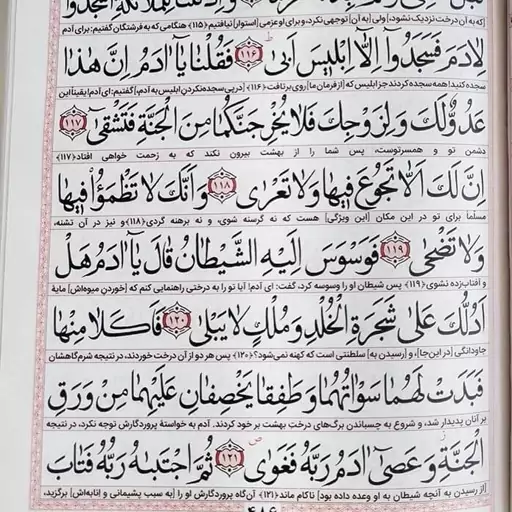 [که به آن درخت نزدیک نشود]، ولی [به آن] توجهی نکرد، و برای او عزمی [استوار] نیافتیم ﴿۱۱۵﴾ هنگامی که به فرشتگان گفتیم: برای آدم
لِادَمَ فَسَجَدُوٓا اِلَّٓا اِبْلِيسَ اَبٰى ﴿۱۱۶﴾ فَقُلْنَا يَآ اٰدَمُ اِنَّ هٰذَا
سجده کنید! همه سجده کردند جز ابلیس که [از فرمان ما] روی برتافت ﴿۱۱۶﴾ [در پی سجده نکردن ابلیس به آدم] گفتیم: ای آدم! یقیناً این
عَدُوٌّ لَكَ وَلِزَوْجِكَ فَلَا يُخْرِجَنَّكُمَا مِنَ الْجَنَّةِ فَتَشْقٰى ﴿۱۱۷﴾
دشمن تو و همسر توست، پس شما را از بهشت بیرون نکند که به زحمت خواهی افتاد ﴿۱۱۷﴾
اِنَّ لَكَ اَلَّا تَجُوعَ فِيهَا وَلَا تَعْرٰى ﴿۱۱۸﴾ وَاَنَّكَ لَا تَظْمَؤُا فِيهَا
مسلماً برای تو در این مکان [این ویژگی] هست که نه گرسنه شوی، و نه برهنه گردی ﴿۱۱۸﴾ و نیز در آن تشنه،
وَلَا تَضْحٰى ﴿۱۱۹﴾ فَوَسْوَسَ اِلَيْهِ الشَّيْطَانُ قَالَ يَآ اٰدَمُ هَلْ
و آفتاب‌زده نشوی ﴿۱۱۹﴾ پس شیطان او را وسوسه کرد، گفت: ای آدم! آیا تو را به درختی راهنمایی کنم که [خوردن میوه‌اش] مایهٔ
اَدُلُّكَ عَلٰى شَجَرَةِ الْخُلْدِ وَمُلْكٍ لَا يَبْلٰى ﴿۱۲۰﴾ فَاَكَلَا مِنْهَا
جاودانگی [در این‌جا]، و [رسیدن به] سلطنتی است که کهنه نمی‌شود؟ ﴿۱۲۰﴾ پس هر دو از آن درخت خوردند، در نتیجه شرم‌گاهشان
فَبَدَتْ لَهُمَا سَوْاٰتُهُمَا وَطَفِقَا يَخْصِفَانِ عَلَيْهِمَا مِنْ وَرَقِ
بر آنان پدیدار شد، و شروع به چسباندن برگ‌های درخت بهشت بر خود کردند. آدم به خواستهٔ پروردگارش توجه نکرد، در نتیجه
الْجَنَّةِ وَعَصٰٓى اٰدَمُ رَبَّهُ فَغَوٰى ﴿۱۲۱﴾ ثُمَّ اجْتَبٰيهُ رَبُّهُ فَتَابَ
[از رسیدن به آنچه شیطان به او وعده داده بود] ناکام ماند ﴿۱۲۱﴾ آن‌گاه پروردگارش او را [به سبب پشیمانی و انابه‌اش] برگزید،